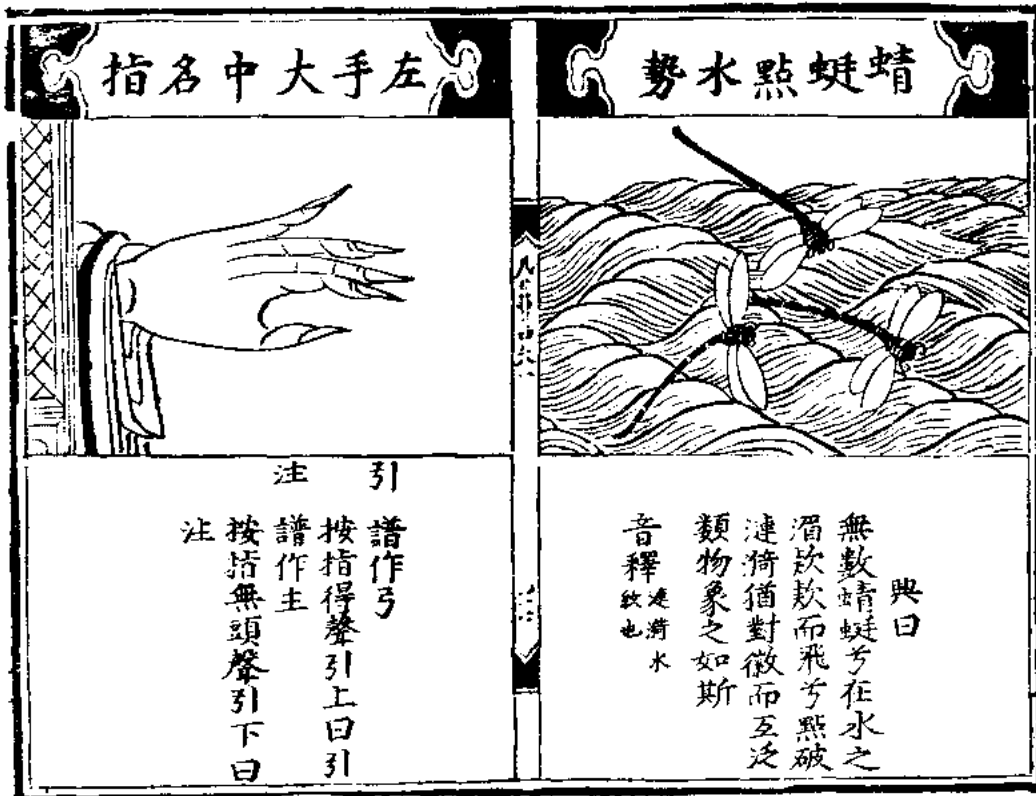 蜻蜓點水勢
興曰
無數蜻蜓兮在水之
湄欵欵而飛兮點破
漣漪猶對徽而互泛
類物象之如斯
音釋漣漪水
紋也
左手大中名指
引 譜作弓
按指得聲引上曰引
注 譜作主
按指無頭聲引下曰
注